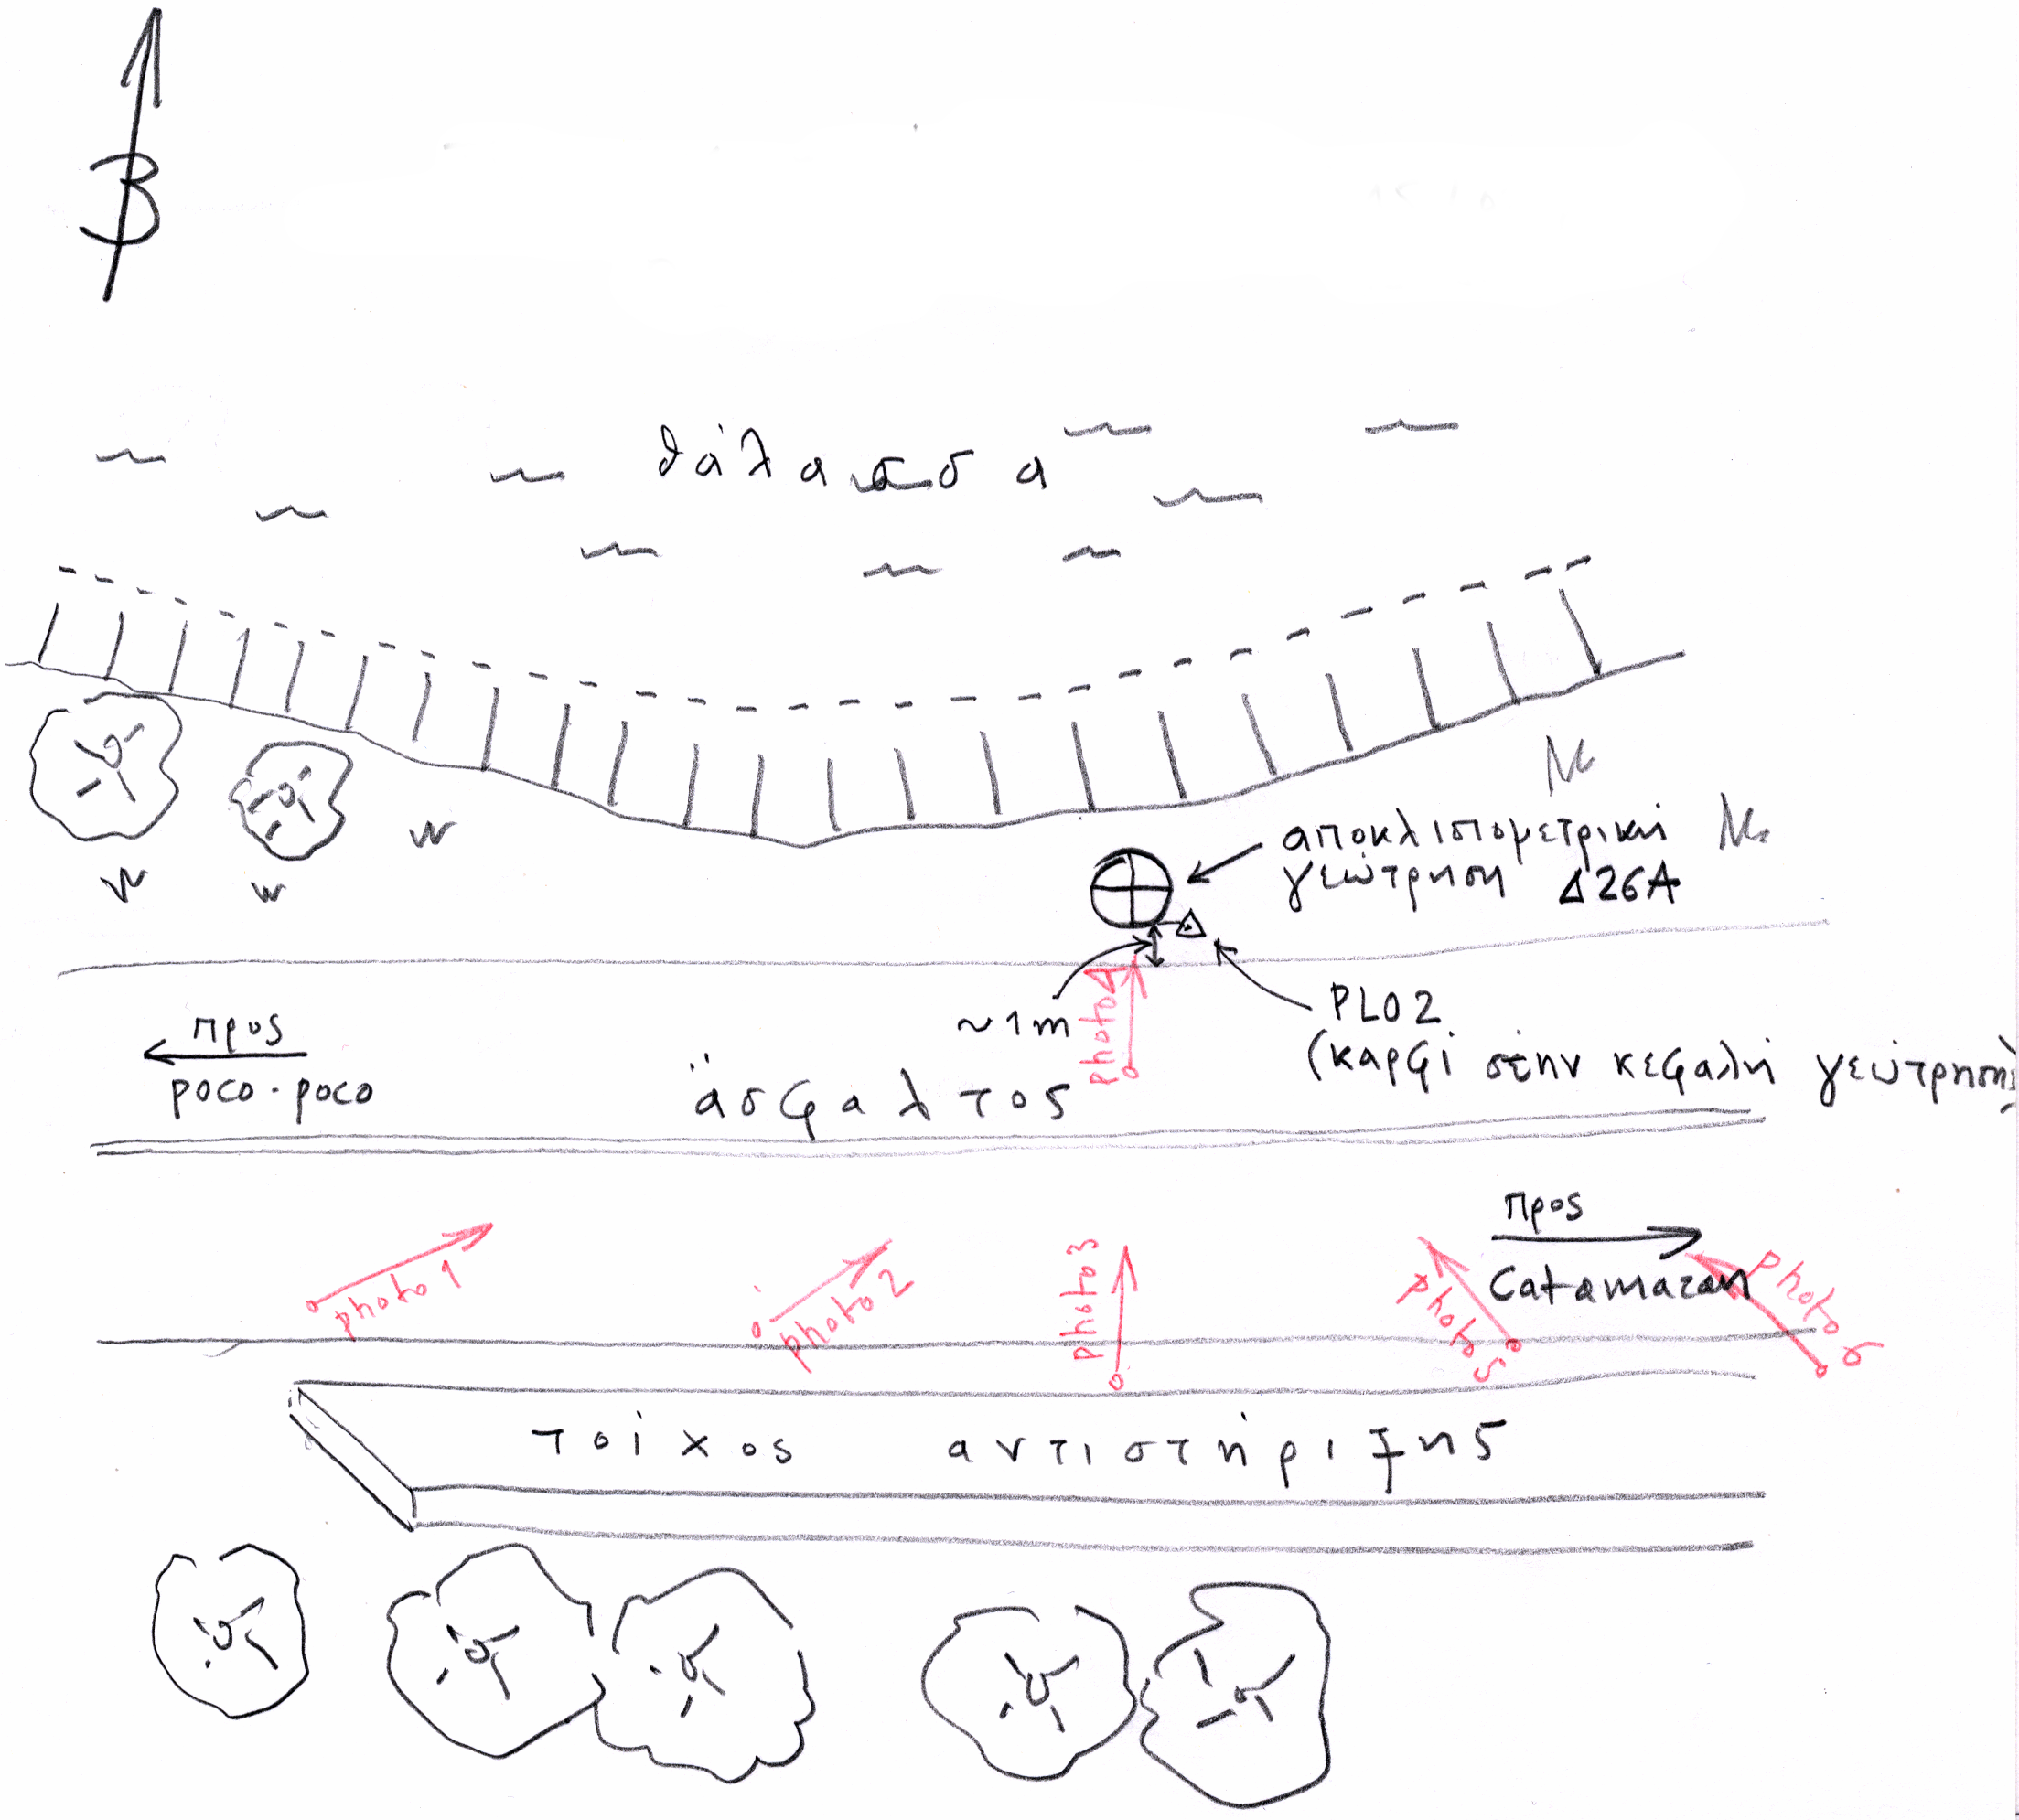 Β
θάλασσα
αποκλισιομετρική
γεώτρηση Δ26Α
~1m
photo 4
PL02
(καρφί στην κεφαλή γεώτρησης)
προς
poco-poco
άσφαλτος
προς
Catamaran
photo 1
photo 2
photo 3
photo 5
photo 6
τοίχος αντιστήριξης